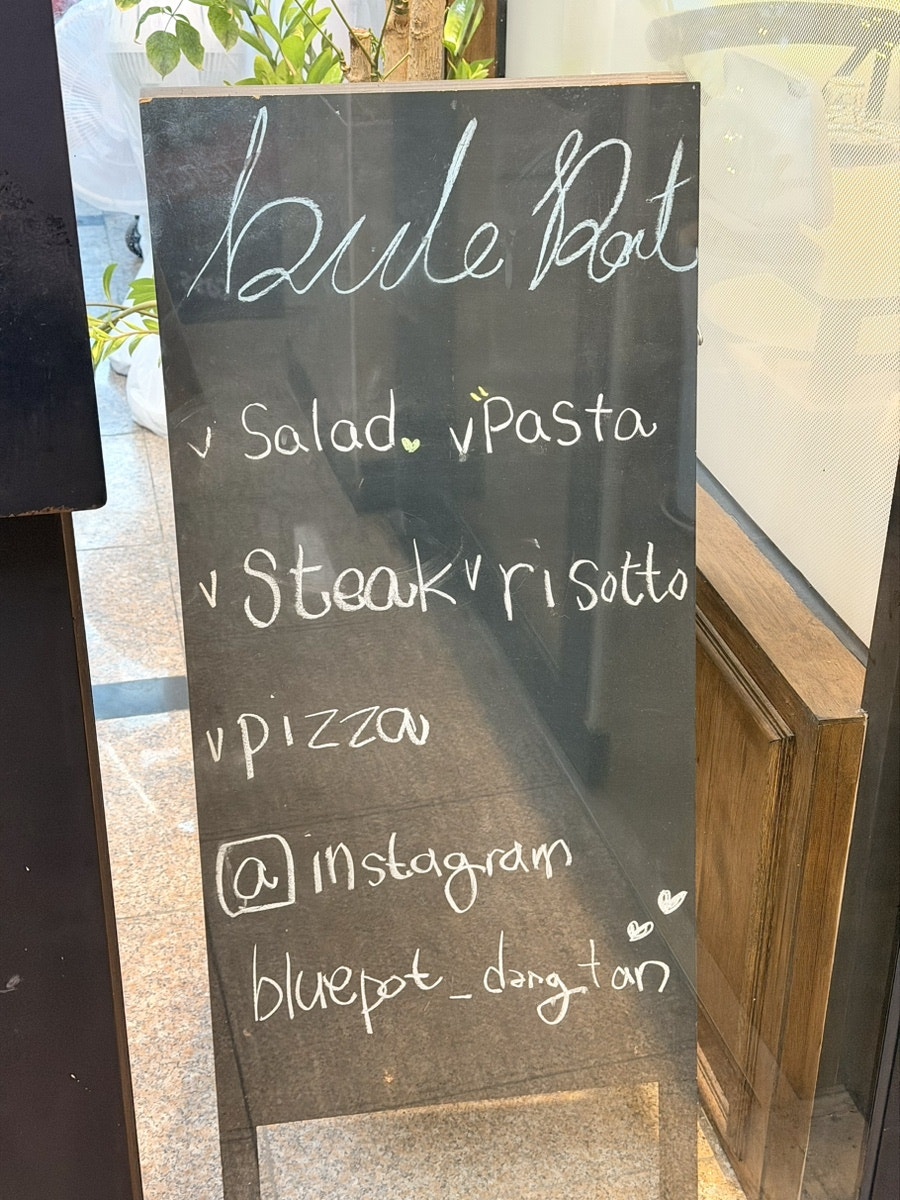 bule Pot
v Salad v Pasta
v Steak v risotto
v pizza
@ instagram
bluepot_dang.tan